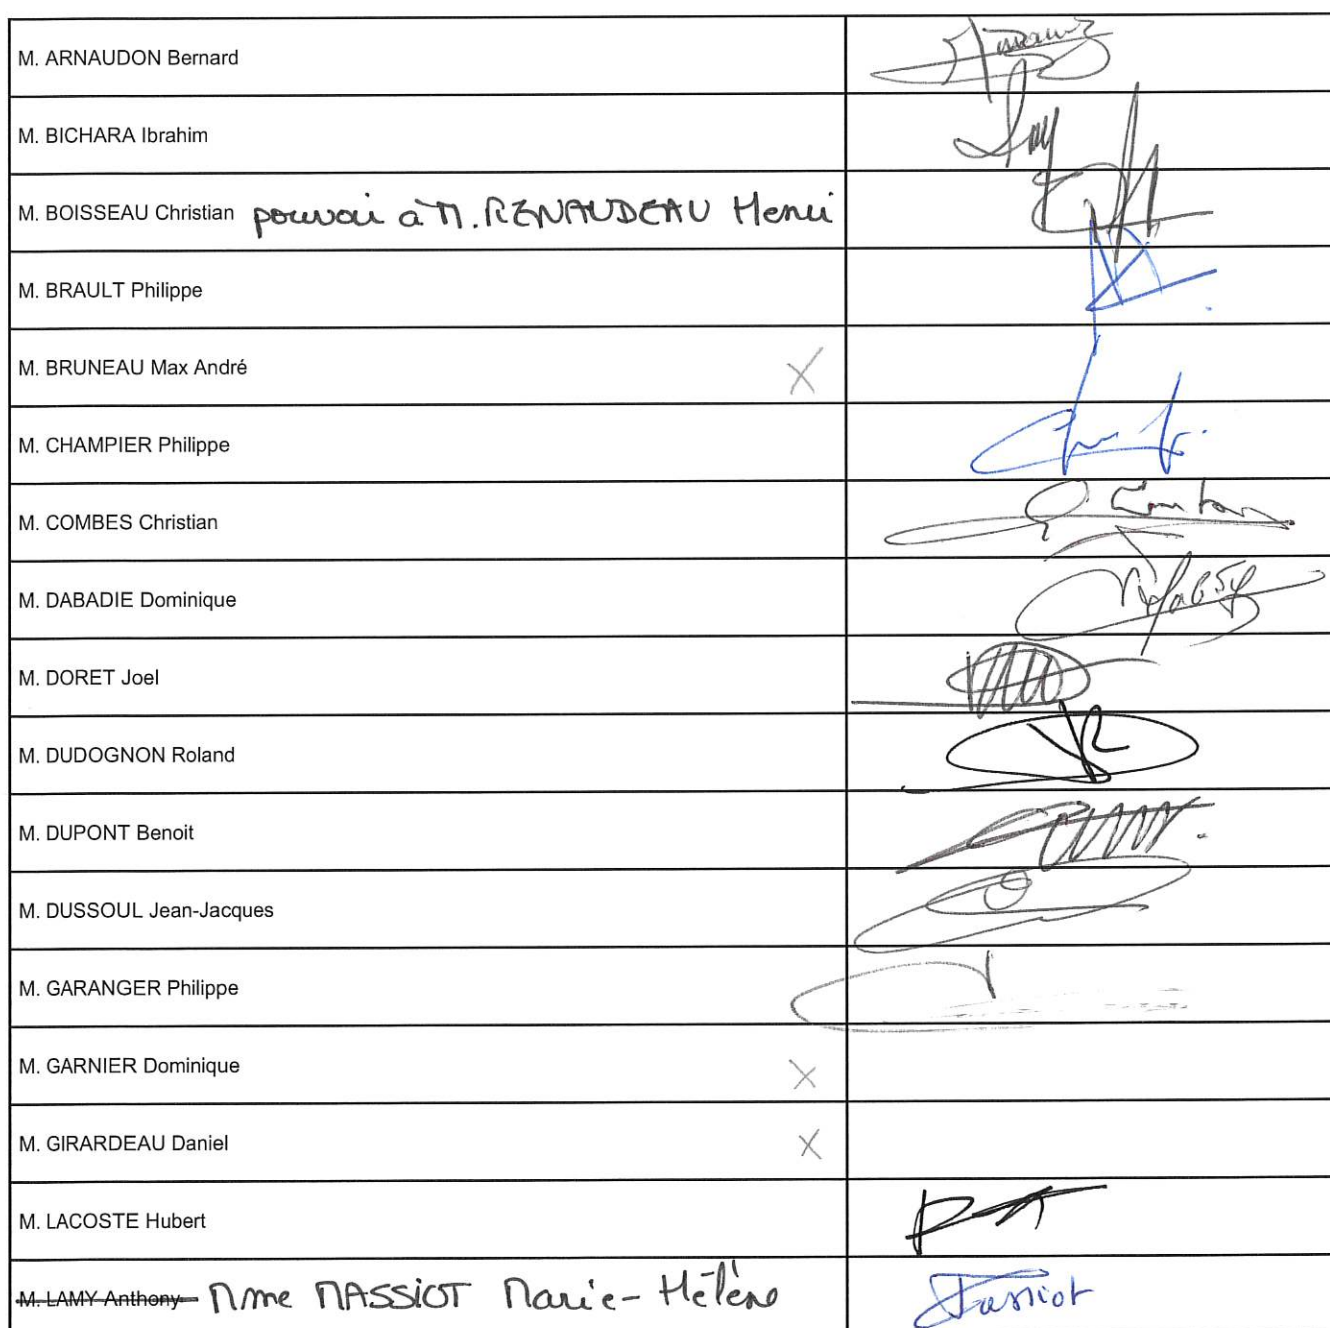 M. ARNAUDON Bernard
M. BICHARA Ibrahim
M. BOISSEAU Christian pouvoir à M. RENAUDEAU Henri
M. BRAULT Philippe
M. BRUNEAU Max André X
M. CHAMPIER Philippe
M. COMBES Christian
M. DABADIE Dominique
M. DORET Joel
M. DUDOGNON Roland
M. DUPONT Benoit
M. DUSSOUL Jean-Jacques
M. GARANGER Philippe
M. GARNIER Dominique X
M. GIRARDEAU Daniel X
M. LACOSTE Hubert
M. LAMY Anthony Mme MASSIOT Marie-Hélène Massiot